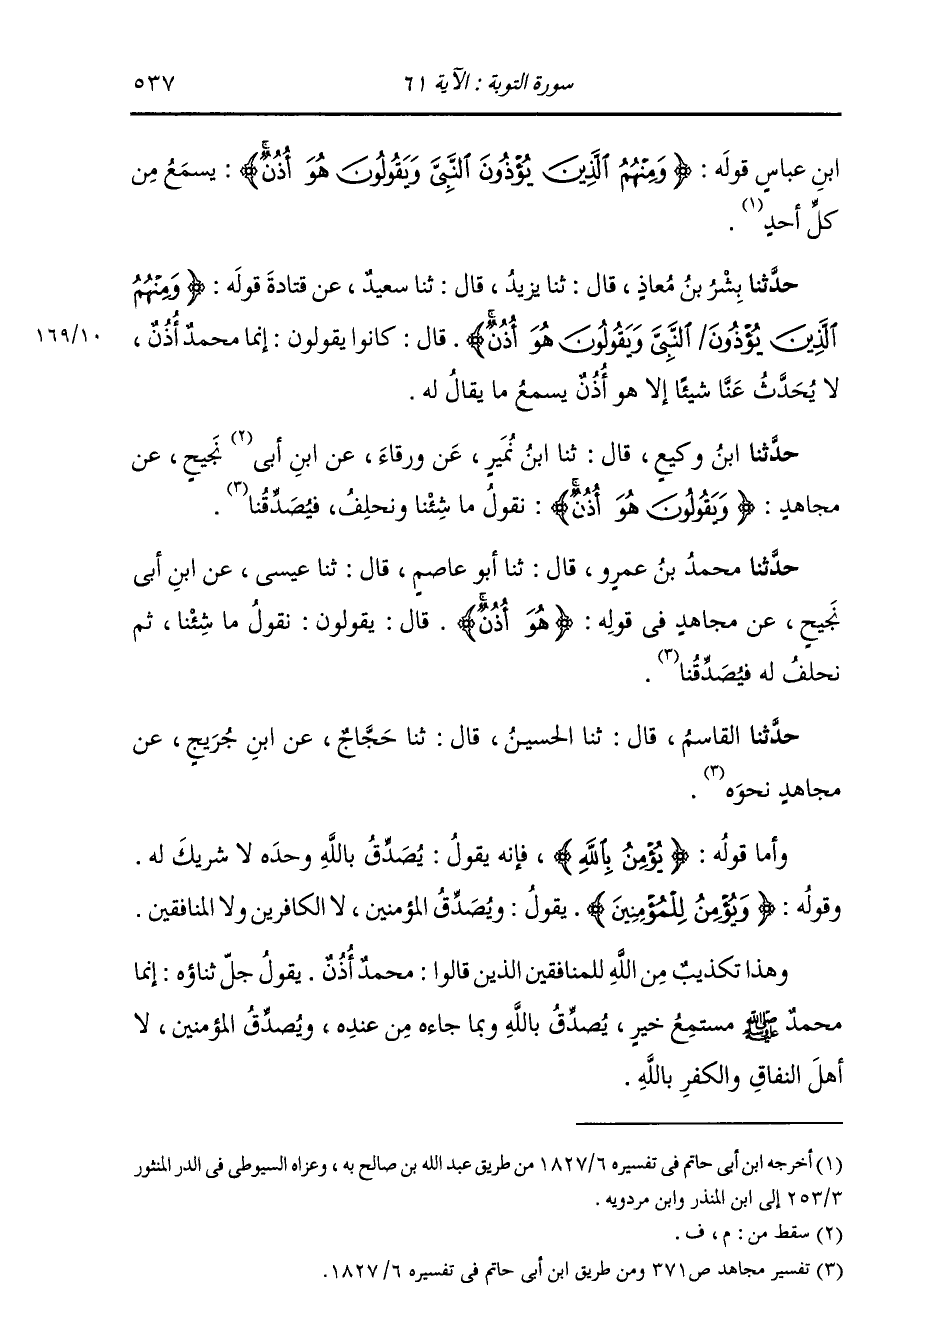 سورة التوبة : الآية ٦١ ٥٣٧
ابنِ عباسٍ قولَه : ﴿ وَمِنْهُمُ ٱلَّذِينَ يُؤْذُونَ ٱلنَّبِىَّ وَيَقُولُونَ هُوَ أُذُنٌۚ ﴾ : يسمَعُ مِن
كلِّ أحدٍ(١) .
حدَّثنا بِشْرُ بنُ مُعاذٍ ، قال : ثنا يزيدُ ، قال : ثنا سعيدٌ ، عن قتادةَ قولَه : ﴿ وَمِنْهُمُ
ٱلَّذِينَ يُؤْذُونَ/ ٱلنَّبِىَّ وَيَقُولُونَ هُوَ أُذُنٌۚ ﴾ . قال : كانوا يقولون : إنما محمدٌ أُذُنٌ ، ١٦٩/١٠
لا يُحَدَّثُ عَنَّا شيئًا إلا هو أُذُنٌ يسمعُ ما يقالُ له .
حدَّثنا ابنُ وكيعٍ ، قال : ثنا ابنُ نُمَيرٍ ، عَن ورقاءَ ، عن ابنِ أبى(٢) نَجيحٍ ، عن
مجاهدٍ : ﴿ وَيَقُولُونَ هُوَ أُذُنٌۚ ﴾ : نقولُ ما شِئْنا ونحلِفُ ، فيُصَدِّقُنا(٣) .
حدَّثنا محمدُ بنُ عمرٍو ، قال : ثنا أبو عاصمٍ ، قال : ثنا عيسى ، عن ابنِ أبى
نَجيحٍ ، عن مجاهدٍ فى قولِه : ﴿ هُوَ أُذُنٌۚ ﴾ . قال : يقولون : نقولُ ما شِئْنا ، ثم
نحلفُ له فيُصَدِّقُنا(٣) .
حدَّثنا القاسمُ ، قال : ثنا الحسينُ ، قال : ثنا حَجَّاجٌ ، عن ابنِ جُرَيجٍ ، عن
مجاهدٍ نحوَه(٣) .
وأما قولُه : ﴿ يُؤْمِنُ بِٱللَّهِ ﴾ ، فإنه يقولُ : يُصَدِّقُ باللَّهِ وحدَه لا شريكَ له .
وقولُه : ﴿ وَيُؤْمِنُ لِلْمُؤْمِنِينَ ﴾ . يقولُ : ويُصَدِّقُ المؤمنين ، لا الكافرين ولا المنافقين .
وهذا تكذيبٌ مِن اللَّهِ للمنافقين الذين قالوا : محمدٌ أُذُنٌ . يقولُ جلّ ثناؤه : إنما
محمدٌ ﷺ مستمِعُ خيرٍ ، يُصدِّقُ باللَّهِ وبما جاءه مِن عندِه ، ويُصدِّقُ المؤمنين ، لا
أهلَ النفاقِ والكفرِ باللَّهِ .
(١) أخرجه ابن أبى حاتم فى تفسيره ١٨٢٧/٦ من طريق عبد الله بن صالح به ، وعزاه السيوطى فى الدر المنثور
٢٥٣/٣ إلى ابن المنذر وابن مردويه .
(٢) سقط من : م ، ف .
(٣) تفسير مجاهد ص٣٧١ ومن طريق ابن أبى حاتم فى تفسيره ١٨٢٧/٦.